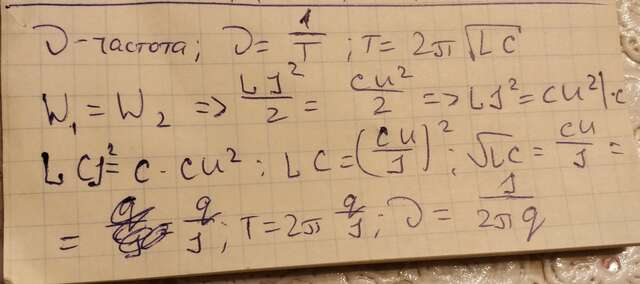 ν - частота; ν = 1/T ; T = 2π√LC
W₁ = W₂ => LJ²/2 = CU²/2 => LJ² = CU² |·C
LCJ² = C · CU² ; LC = (CU/J)² ; √LC = CU/J =
= q/J ; T = 2π q/J ; ν = J/2πq